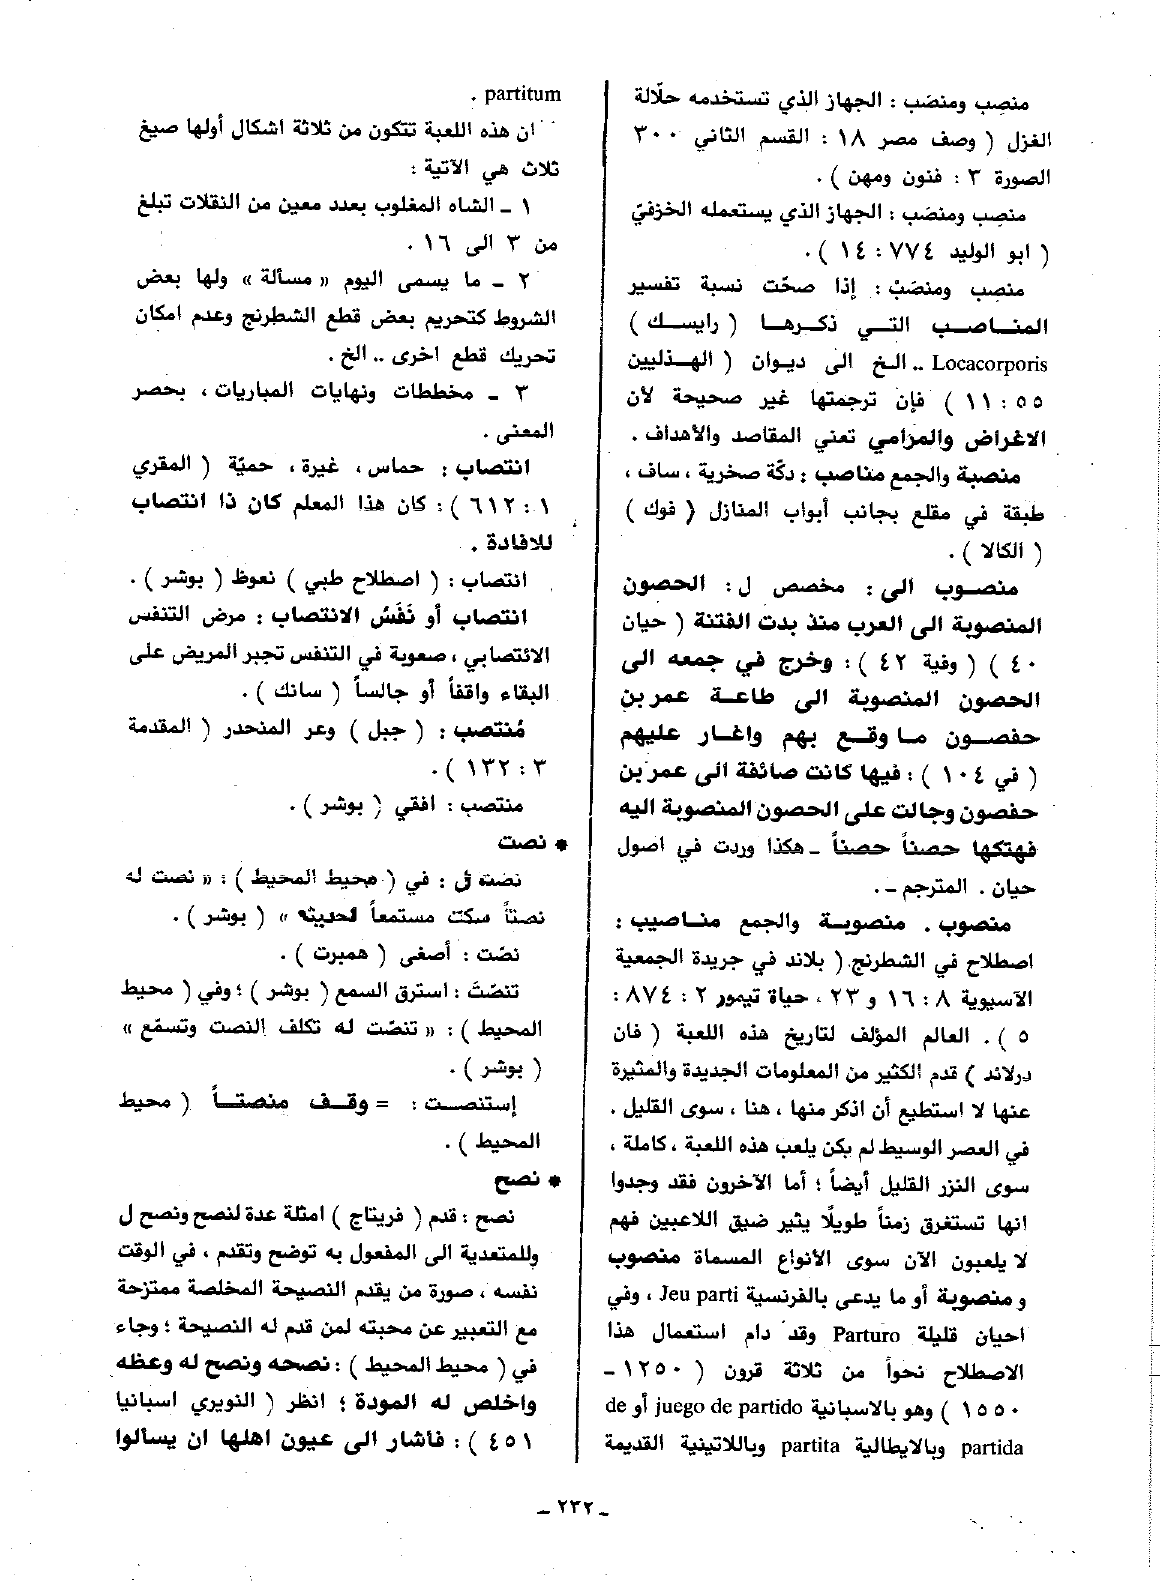 منصِب ومنصَب : الجهاز الذي تستخدمه حلّالة
الغزل ( وصف مصر ١٨ : القسم الثاني ٣٠٠
الصورة ٣ : فنون ومهن ) .
منصِب ومنصَب : الجهاز الذي يستعمله الخزفيّ
( ابو الوليد ٧٧٤ : ١٤ ) .
منصِب ومنصَبْ : إذا صحّت نسبة تفسير
المناصب التي ذكرها ( رايسك )
Locacorporis .. الخ الى ديوان ( الهذليين
٥٥ : ١١ ) فإن ترجمتها غير صحيحة لأن
الاغراض والمرامي تعني المقاصد والأهداف .
منصبة والجمع مناصب : دكّة صخرية ، ساف ،
طبقة في مقلع بجانب أبواب المنازل ( فوك )
( الكالا ) .
منصوب الى : مخصص ل : الحصون
المنصوبة الى العرب منذ بدت الفتنة ( حيان
٤٠ ) ( وفية ٤٢ ) : وخرج في جمعه الى
الحصون المنصوبة الى طاعة عمر بن
حفصون ما وقع بهم واغار عليهم
( في ١٠٤ ) : فيها كانت صائفة الى عمر بن
حفصون وجالت على الحصون المنصوبة اليه
فهتكها حصناً حصناً ـ هكذا وردت في اصول
حيان . المترجم ـ .
منصوب . منصوبة والجمع مناصيب :
اصطلاح في الشطرنج ( بلاند في جريدة الجمعية
الآسيوية ٨ : ١٦ و ٢٣ ، حياة تيمور ٢ : ٨٧٤ :
٥ ) . العالم المؤلف لتاريخ هذه اللعبة ( فان
درلاند ) قدم الكثير من المعلومات الجديدة والمثيرة
عنها لا استطيع أن اذكر منها ، هنا ، سوى القليل .
في العصر الوسيط لم يكن يلعب هذه اللعبة ، كاملة ،
سوى النزر القليل أيضاً ؛ أما الآخرون فقد وجدوا
انها تستغرق زمناً طويلًا يثير ضيق اللاعبين فهم
لا يلعبون الآن سوى الأنواع المسماة منصوب
و منصوبة أو ما يدعى بالفرنسية Jeu parti ، وفي
احيان قليلة Parturo وقد دام استعمال هذا
الاصطلاح نحواً من ثلاثة قرون ( ١٢٥٠ ـ
١٥٥٠ ) وهو بالاسبانية juego de partido أو de
partida وبالايطالية partita وباللاتينية القديمة
partitum .
ان هذه اللعبة تتكون من ثلاثة اشكال أولها صيغ
ثلاث هي الآتية :
١ ـ الشاه المغلوب بعدد معين من النقلات تبلغ
من ٣ الى ١٦ .
٢ ـ ما يسمى اليوم « مسألة » ولها بعض
الشروط كتحريم بعض قطع الشطرنج وعدم امكان
تحريك قطع اخرى .. الخ .
٣ ـ مخططات ونهايات المباريات ، بحصر
المعنى .
انتصاب : حماس ، غيرة ، حميّة ( المقري
١ : ٦١٢ ) : كان هذا المعلم كان ذا انتصاب
للافادة .
انتصاب : ( اصطلاح طبي ) نعوظ ( بوشر ) .
انتصاب أو نَفَسُ الانتصاب : مرض التنفس
الائتصابي ، صعوبة في التنفس تجبر المريض على
البقاء واقفاً أو جالساً ( سانك ) .
مُنتصب : ( جبل ) وعر المنحدر ( المقدمة
٣ : ١٣٢ ) .
منتصب : افقي ( بوشر ) .
* نصت
نصَت لِ : في ( محيط المحيط ) : « نصت له
نصتاً سكت مستمعاً لحديثه » ( بوشر ) .
نصّت : أصغى ( همبرت ) .
تنصّتَ : استرق السمع ( بوشر ) ؛ وفي ( محيط
المحيط ) : « تنصّت له تكلف النصت وتسمّع »
( بوشر ) .
إستنصت : = وقف منصتاً ( محيط
المحيط ) .
* نصح
نصح : قدم ( فريتاج ) امثلة عدة لنصح ونصح ل
وللمتعدية الى المفعول به توضح وتقدم ، في الوقت
نفسه ، صورة من يقدم النصيحة المخلصة ممتزحة
مع التعبير عن محبته لمن قدم له النصيحة ؛ وجاء
في ( محيط المحيط ) : نصحه ونصح له وعظه
واخلص له المودة ؛ انظر ( النويري اسبانيا
٤٥١ ) : فأشار الى عيون اهلها ان يسالوا
ـ ٢٣٢ ـ